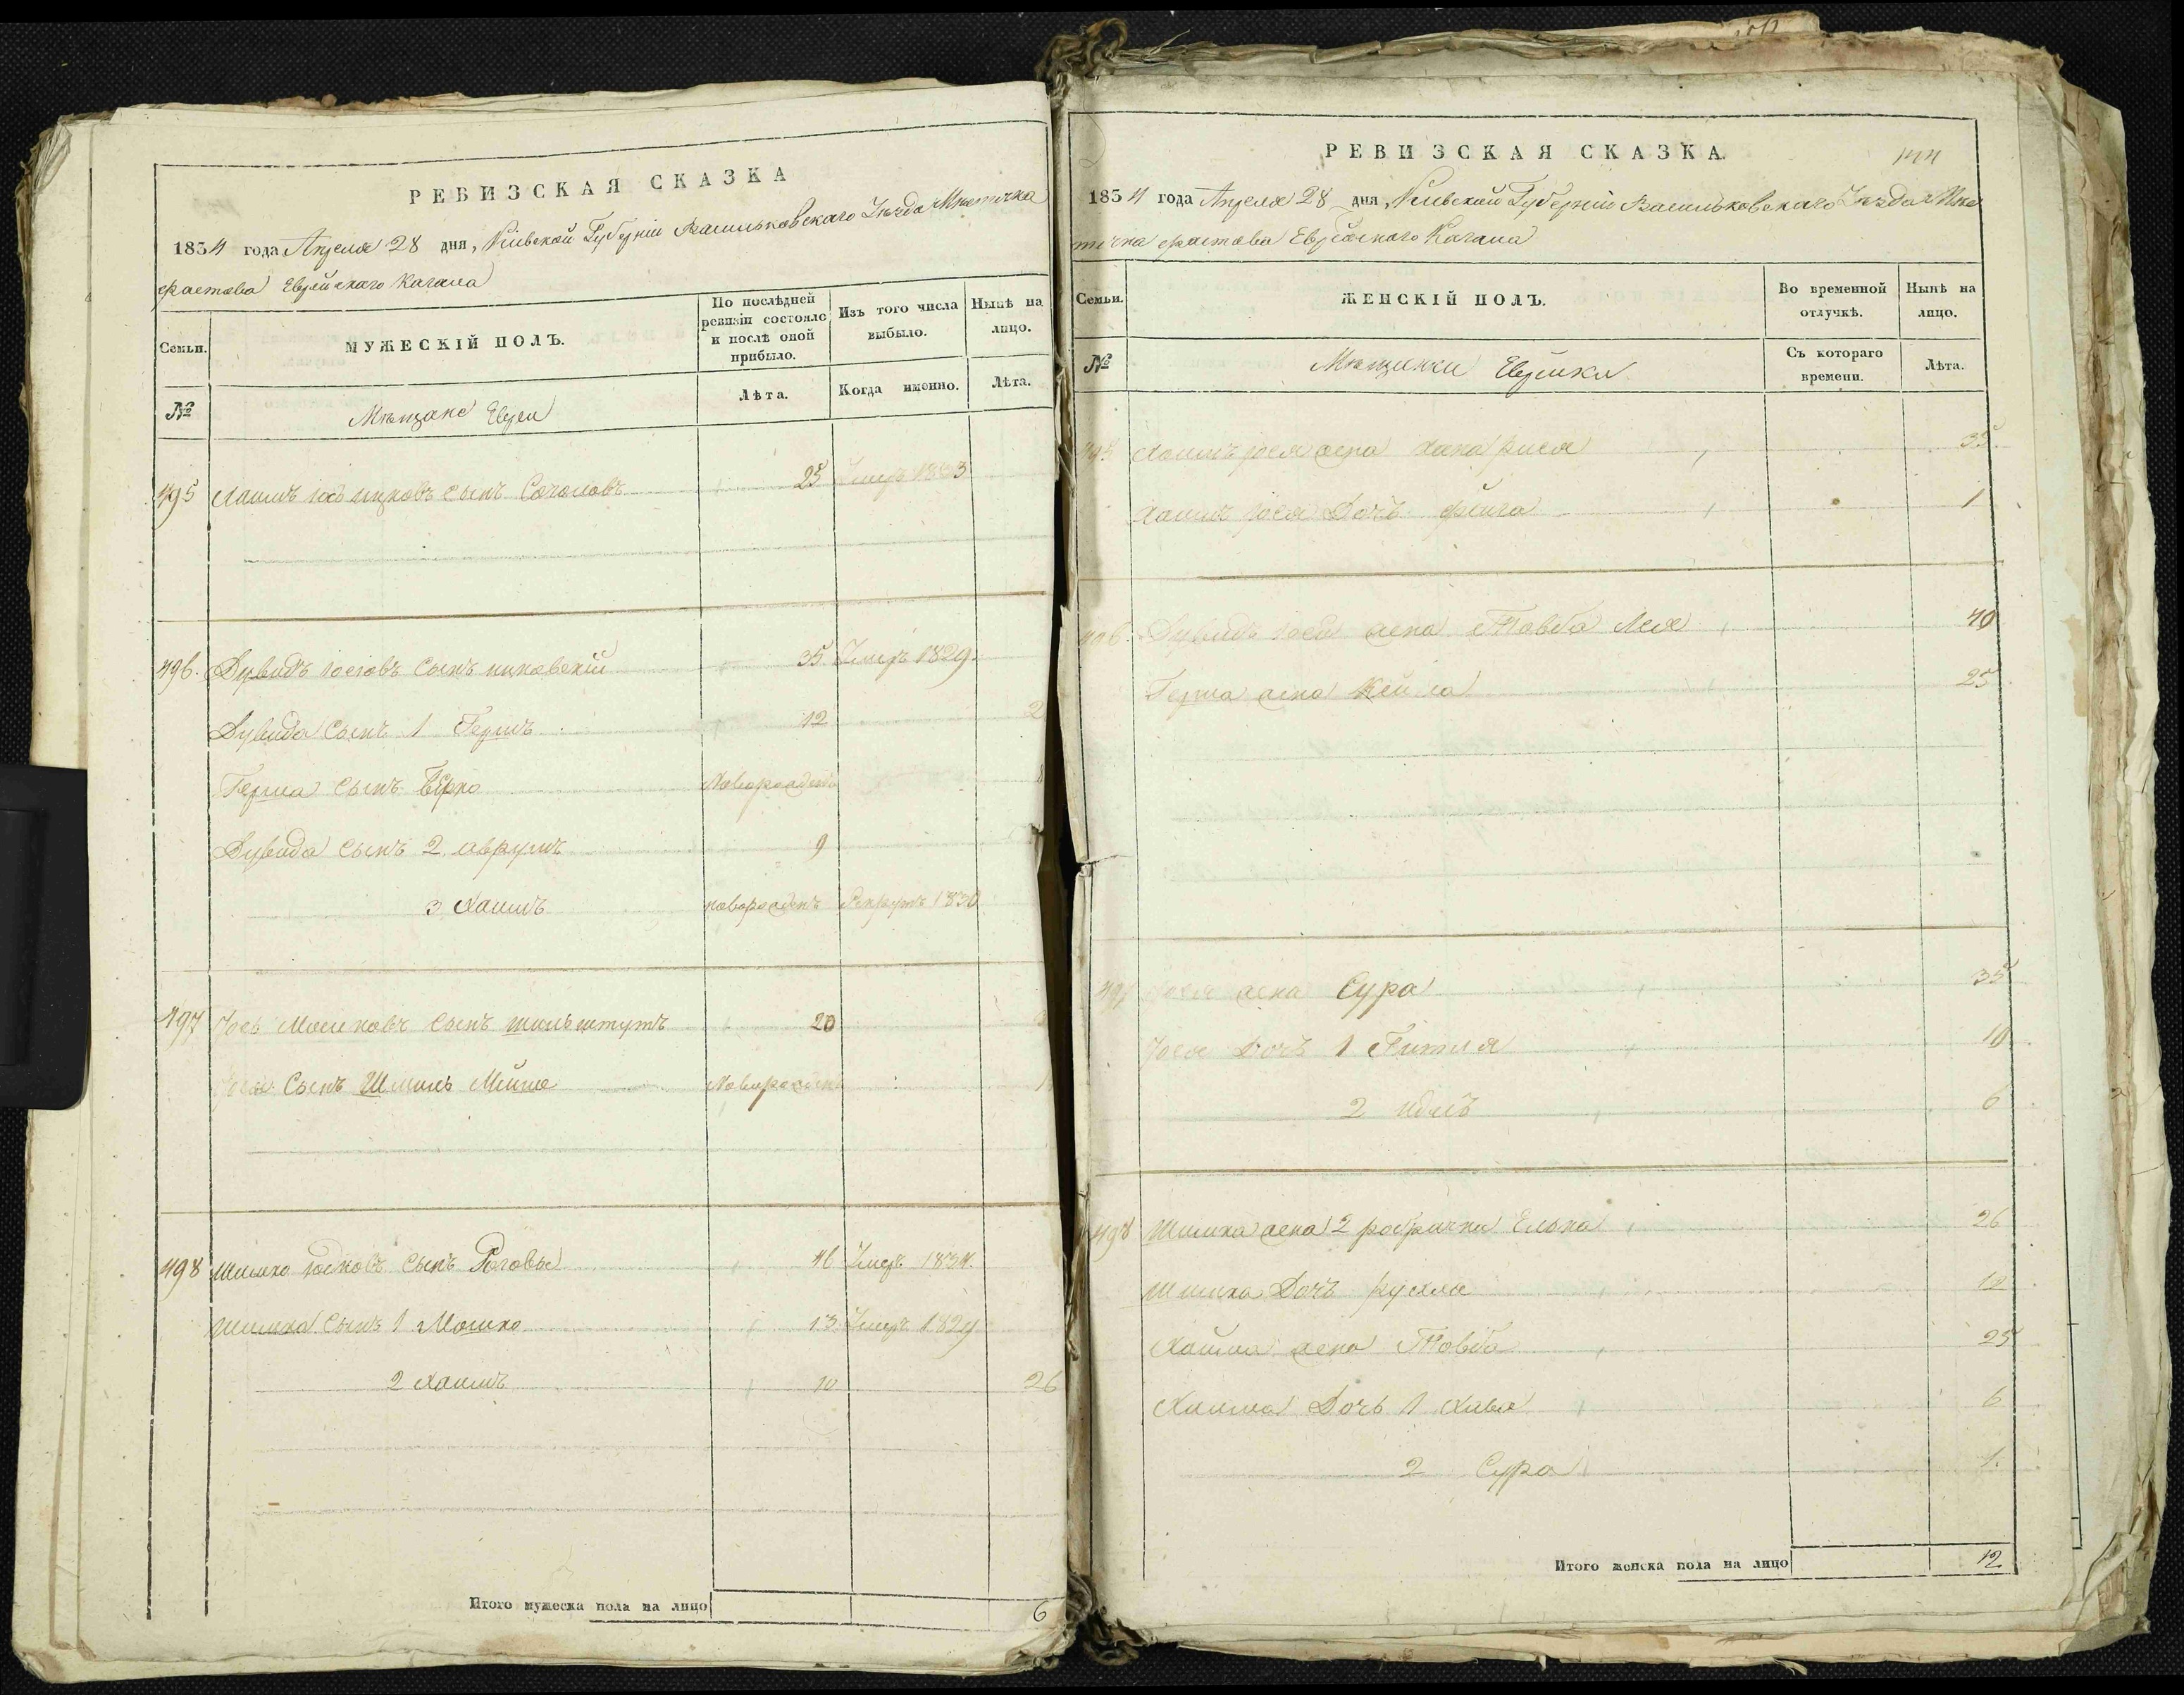 РЕВИЗСКАЯ СКАЗКА
1834 года Апреля 28 дня, Кіевской Губерніи Васильковскаго Уѣзда Мѣстечка
Фастова Еврейскаго Кагала
Семьи.
МУЖЕСКІЙ ПОЛЪ.
По послѣдней ревизіи состояло и послѣ оной прибыло.
Изъ того числа выбыло.
Нынѣ на лицо.
№
Мѣщане Евреи
Лѣта.
Когда именно.
Лѣта.
495 Хаимъ Іось Ицковъ сынъ 25 Умеръ 1833
496. Дувидъ Іосіовъ Сынъ 35 Умеръ 1829.
Дувида Сынъ 1 Гершъ 12
Герша Сынъ Берко Новорожденъ
Дувида Сынъ 2 аврумъ 9
3 Хаимъ новорожденъ Рекрутъ 1830
497 Іось Мошковъ Сынъ 20
Іося Сынъ Шмиль Мейше Новорожденъ
498 Шимко Іосковъ Сынъ 46 Умеръ 1834.
Шимка Сынъ 1 Мошко 13 Умеръ 1829
2 Хаимъ 10 26
Итого мужеска пола на лицо 6
РЕВИЗСКАЯ СКАЗКА
1834 года Апреля 28 дня, Кіевской Губерніи Васильковскаго Уѣзда Мѣс
течка Фастова Еврейскаго Кагала
Семьи.
ЖЕНСКІЙ ПОЛЪ.
Во временной отлучкѣ.
Нынѣ на лицо.
№
Мѣщанки Еврейки
Съ котораго времени.
Лѣта.
495 Хаимъ Іося жена Хана Рися 35
Хаимъ Іося Дочь Фейга 1
496 Дувидъ Іося жена Товба Лея 40
Герша жена Кейла 25
497 Іося жена Сура 35
Іося Дочь 1 Гитля 10
2 6
498 Шимка жена 2 Елька 26
Шимка Дочь Рухля 12
Хаима жена Товба 25
Хаима Дочь 1 Хивя 6
2 Сура 1.
Итого женска пола на лицо 12